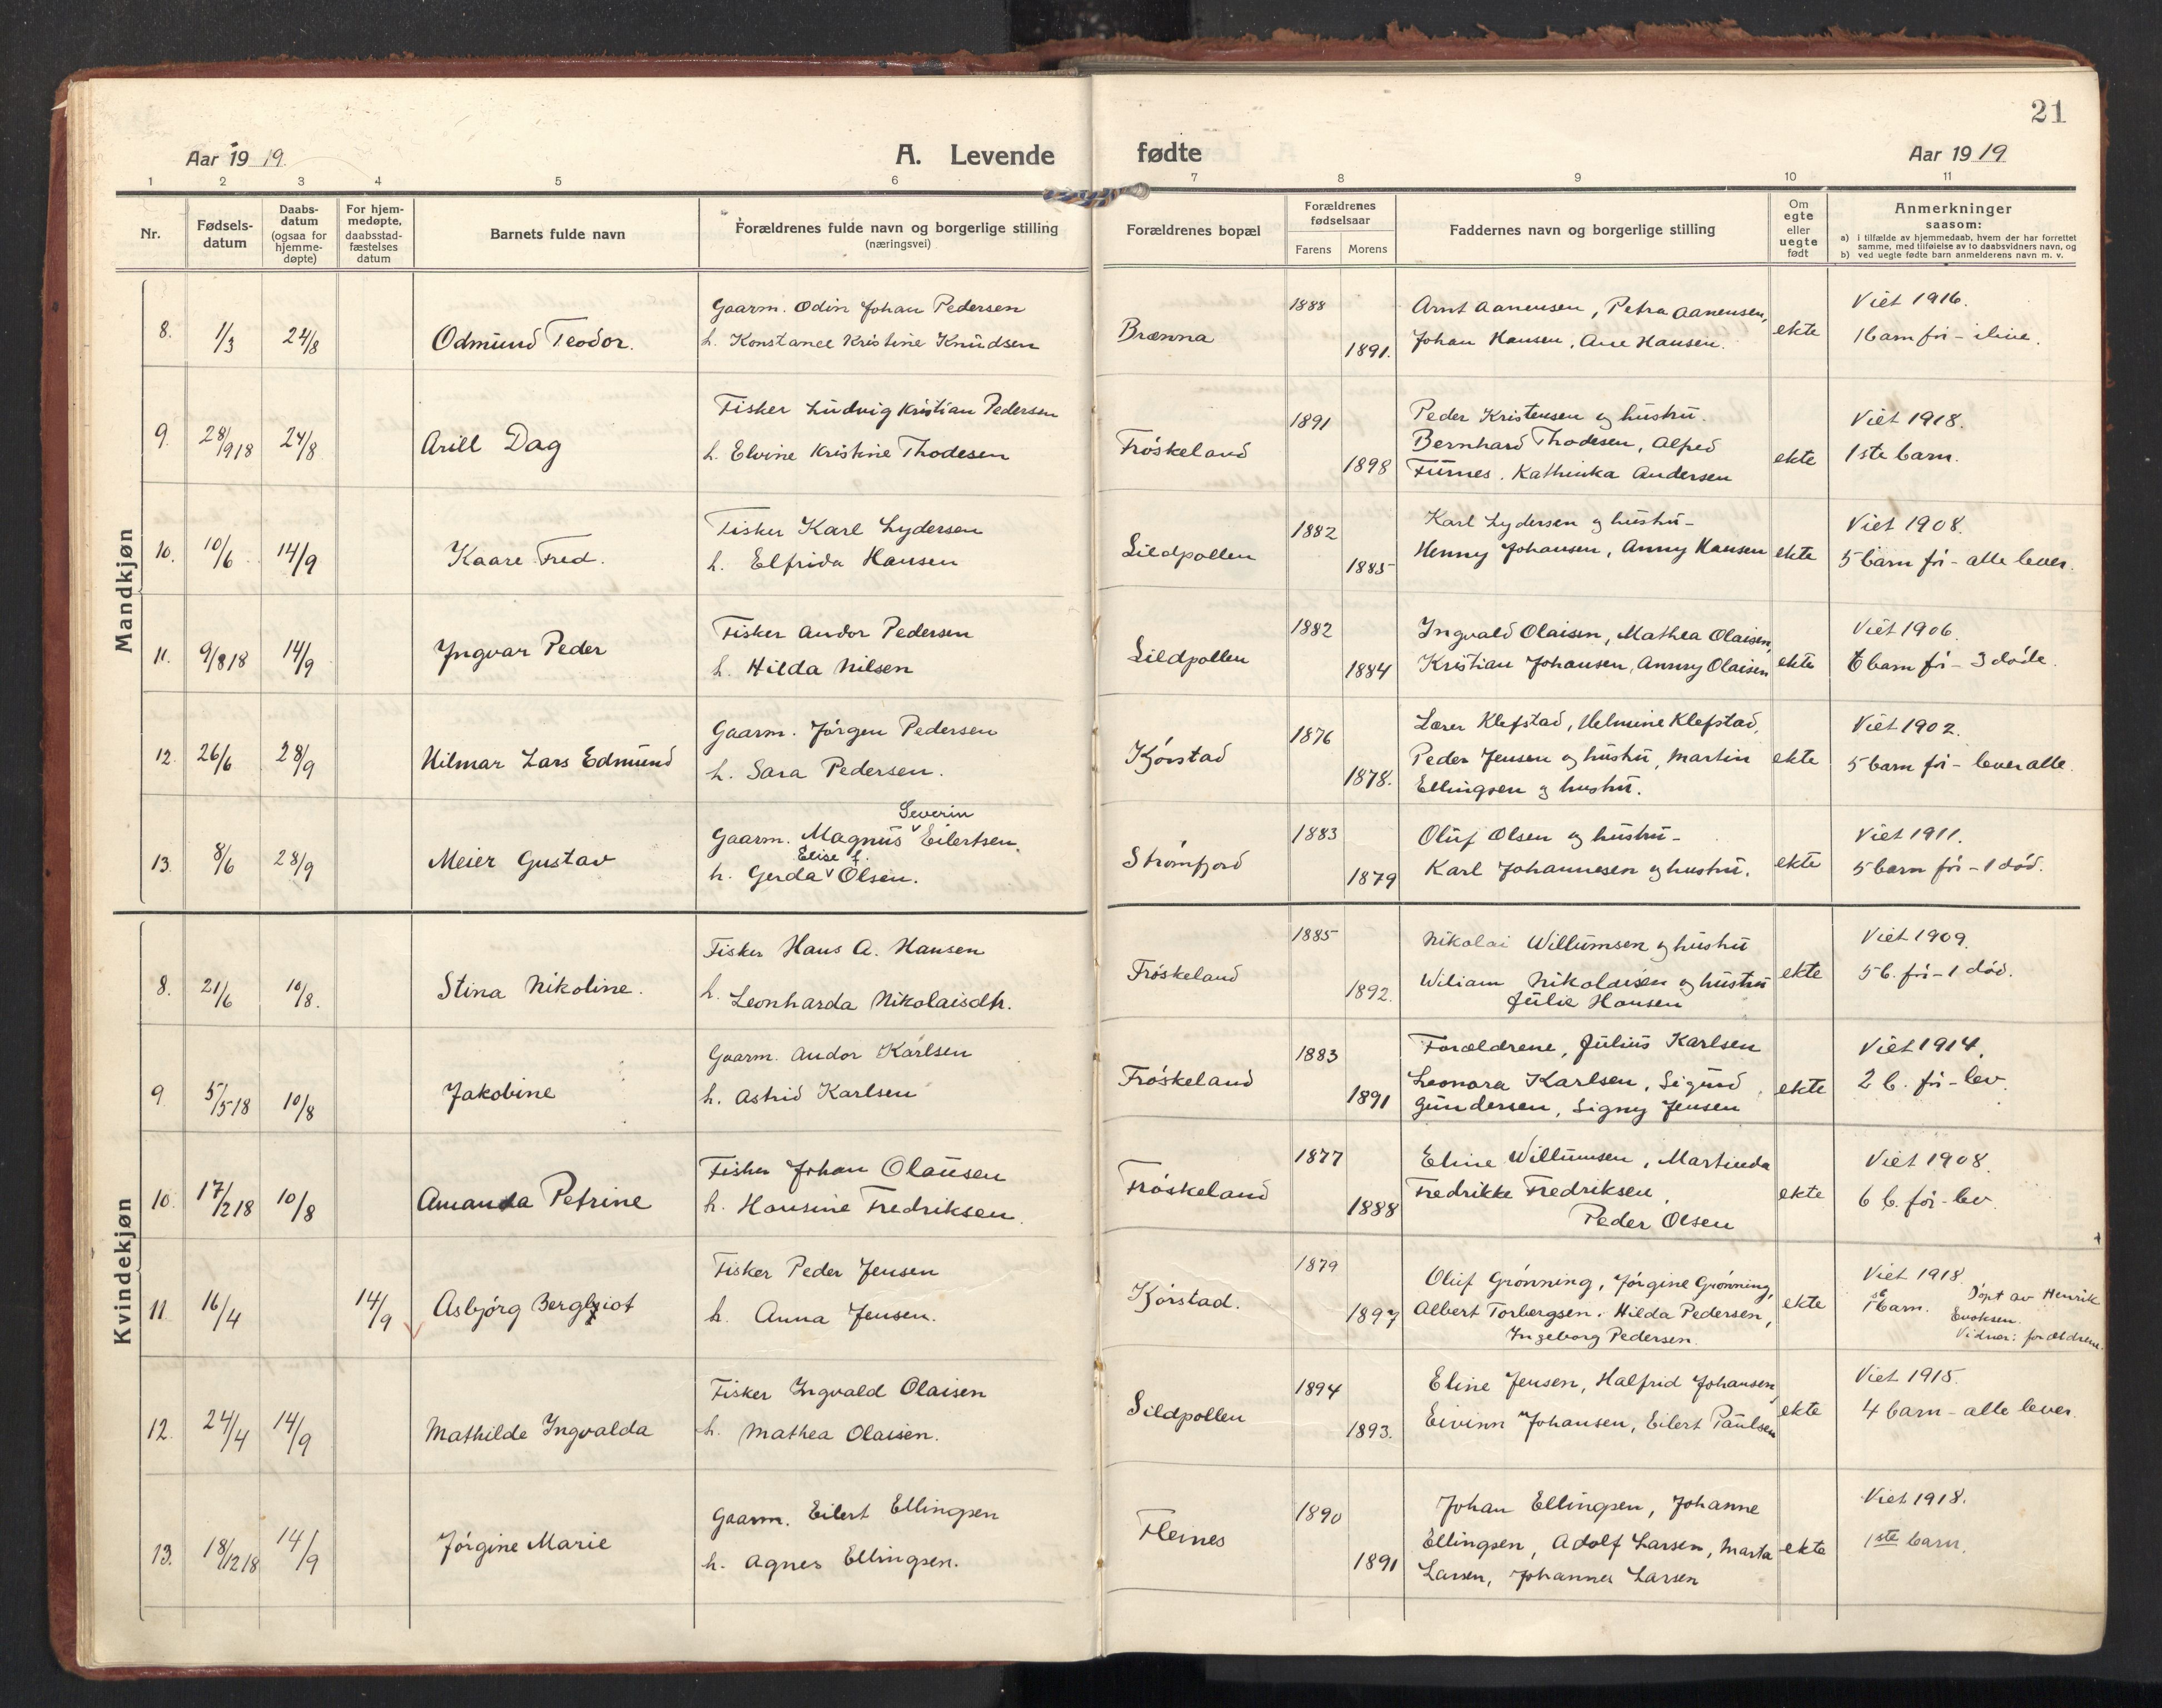 21
Aar 1919
A. Levende fødte
Aar 1919
1 2 3 4 5 6 7 8 9 10 11
Nr.
Fødsels-
datum
Daabs-
datum
(ogsaa for
hjemme-
døpte)
For hjem-
medøpte,
daabsstad-
fæstelses
datum
Barnets fulde navn
Forældrenes fulde navn og borgerlige stilling
(næringsvei)
Forældrenes bopæl
Forældrenes
fødselsaar
Farens Morens
Faddernes navn og borgerlige stilling
Om
egte
eller
uegte
født
Anmerkninger
saasom:
a) i tilfælde av hjemmedaab, hvem der har forrettet
samme, med tilføielse av to daabsvidners navn, og
b) ved uegte fødte barn anmelderens navn m. v.
Mandkjøn
8. 1/3 24/8 Odmund Teodor.
Gaarm. Odin Johan Pedersen
h. Konstance Kristine Knudsen
Brænna 1888 1891.
Arnt Aanensen, Petra Aanensen,
Johan Hansen, Ane Hansen.
ekte
Viet 1916.
1 barn før - ilive.
9. 28/9 18 24/8 Arill Dag
Fisker Ludvig Kristian Pedersen
h. Elvine Kristine Thodesen
Frøskeland 1891 1898
Peder Kristensen og hustru.
Bernhard Thodesen, Alfred
Furnes. Kathinka Andersen
ekte
Viet 1918.
1ste barn.
10. 10/6 14/9 Kaare Fred.
Fisker Karl Lydersen
h. Elfrida Hansen
Sildpollen 1882 1885
Karl Lydersen og hustru -
Henny Johansen, Anny Hansen
ekte
Viet 1908.
5 barn før - alle lever.
11. 9/8 18 14/9 Yngvar Peder
Fisker Andor Pedersen
h. Hilda Nilsen
Sildpollen 1882 1884
Ingvald Olaisen, Mathea Olaisen,
Kristian Johansen, Anny Olaisen
ekte
Viet 1906.
6 barn før - 3 døde.
12. 26/6 28/9 Hilmar Lars Edmund
Gaarm. Jørgen Pedersen
h. Sara Pedersen.
Kjørstad 1876 1878.
Lærer Klefstad, Helmine Klefstad,
Peder Jensen og hustru, Martin
Ellingsen og hustru.
ekte
Viet 1902.
5 barn før - lever alle.
13. 8/6 28/9 Meier Gustav
Severin
Gaarm. Magnus Eilertsen.
Elise f.
h. Gerda Olsen.
Strømfjord 1883 1879
Oluf Olsen og hustru -
Karl Johannesen og hustru.
ekte
Viet 1911.
5 barn før - 1 død.
Kvindekjøn
8. 21/6 10/8. Stina Nikoline.
Fisker Hans A. Hansen
h. Leonharda Nikolaisdtr.
Frøskeland 1885 1892.
Nikolai Willumsen og hustru
Wiliam Nikolaisen og hustru
Julie Hansen
ekte
Viet 1909.
5 b. før - 1 død.
9 5/5 18 10/8 Jakobine
Gaarm. Andor Karlsen
h. Astrid Karlsen
Frøskeland 1883 1891
Forældrene, Julius Karlsen
Leonora Karlsen, Sigurd
Gundersen, Signy Jensen
ekte
Viet 1914.
2 b. før - lev.
10. 17/2 18 10/8 Amanda Petrine
Fisker Johan Olausen
h. Hansine Fredriksen.
Frøskeland 1877 1888
Eline Willumsen, Martinda
Fredrikke Fredriksen,
Peder Olsen
ekte
Viet 1908.
6 b. før - lev.
11 16/4 14/9 Asbjørg Bergliot
Fisker Peder Jensen
h. Anna Jensen.
Kjørstad. 1879 1897
Oluf Grønning, Jørgine Grønning,
Albert Torbergsen. Hilda Pedersen,
Ingeborg Pedersen.
ekte
Viet 1918.
1st barn. Døpt av Henrik
Enoksen.
Vidner: forældrene.
12. 24/4 14/9 Mathilde Ingvalda
Fisker Ingvald Olaisen
h. Mathea Olaisen.
Sildpollen 1894 1893.
Eline Jensen, Halfrid Johansen,
Eivinn Johansen, Eilert Paulsen
ekte
Viet 1915.
4 barn - alle lever.
13. 18/12 18 14/9 Jørgine Marie
Gaarm. Eilert Ellingsen
h. Agnes Ellingsen.
Fleines 1890 1891
Johan Ellingsen, Johanne
Ellingsen, Adolf Larsen, Marta
Larsen, Johanna Larsen
ekte
Viet 1918.
1ste barn.